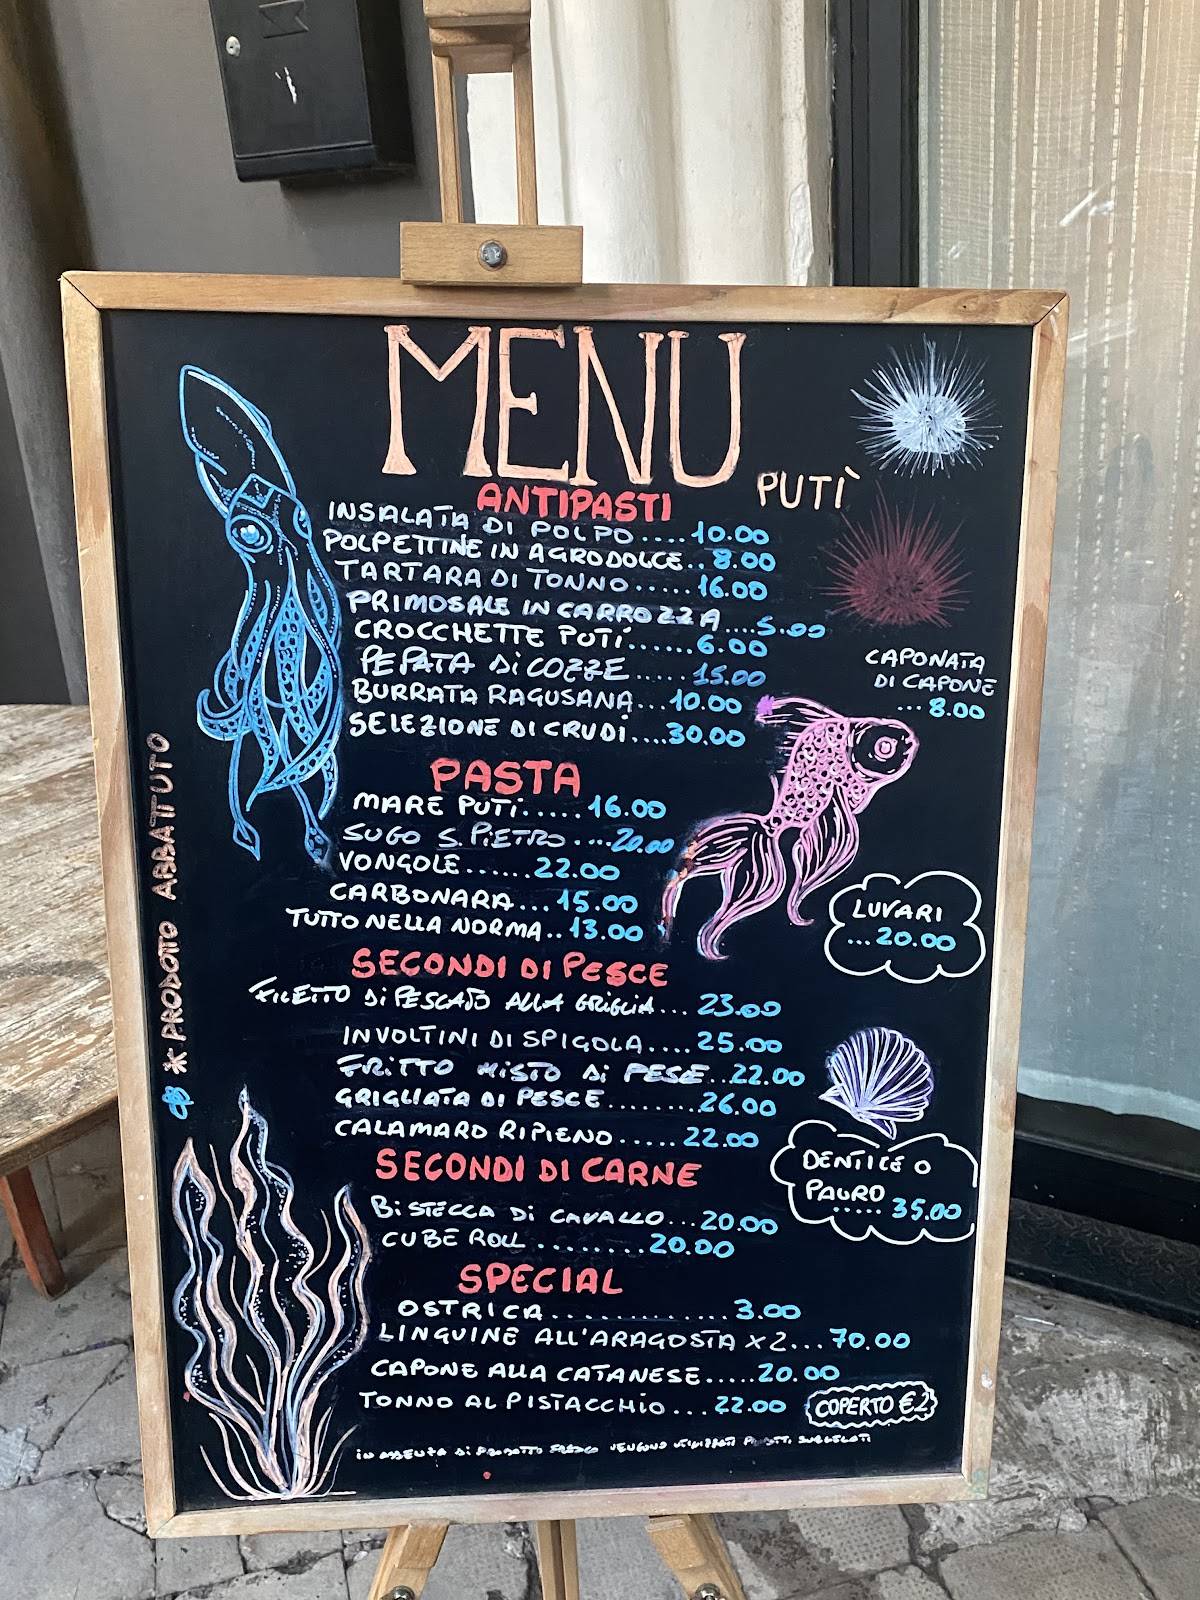 MENU
PUTÌ
ANTIPASTI
INSALATA DI POLPO....10.00
POLPETTINE IN AGRODOLCE..8.00
TARTARA DI TONNO.....16.00
PRIMOSALE IN CARROZZA....5.00
CROCCHETTE PUTÌ......6.00
PEPATA DI COZZE.....15.00
BURRATA RAGUSANA...10.00
SELEZIONE DI CRUDI....30.00
CAPONATA
DI CAPONE
...8.00
PASTA
MARE PUTÌ.....16.00
SUGO S. PIETRO....20.00
VONGOLE......22.00
CARBONARA...15.00
TUTTO NELLA NORMA..13.00
LUVARI
...20.00
SECONDI DI PESCE
FILETTO DI PESCATO ALLA GRIGLIA...23.00
INVOLTINI DI SPIGOLA....25.00
FRITTO MISTO DI PESCE..22.00
GRIGLIATA DI PESCE........26.00
CALAMARO RIPIENO.....22.00
DENTICE O
PAURO
.....35.00
SECONDI DI CARNE
BISTECCA DI CAVALLO...20.00
CUBE ROLL........20.00
SPECIAL
OSTRICA............3.00
LINGUINE ALL'ARAGOSTA X2...70.00
CAPONE ALLA CATANESE.....20.00
TONNO AL PISTACCHIO...22.00
COPERTO €2
IN ASSENZA DI PRODOTTO FRESCO VENGONO UTILIZZATI PRODOTTI SURGELATI
* PRODOTTO ABBATTUTO